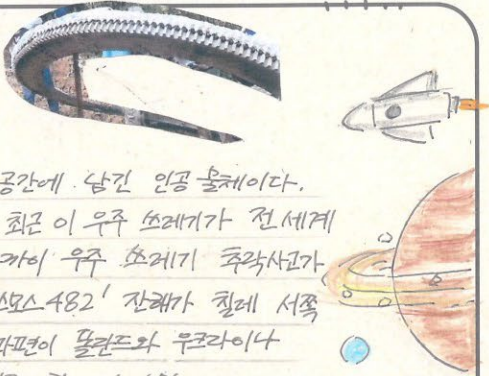 공간에 남긴 인공 물체이다.
최근 이 우주 쓰레기가 전 세계
우주 쓰레기 추락사고가
482' 잔해가 칠레 서쪽
파편이 폴란드와 우크라이나